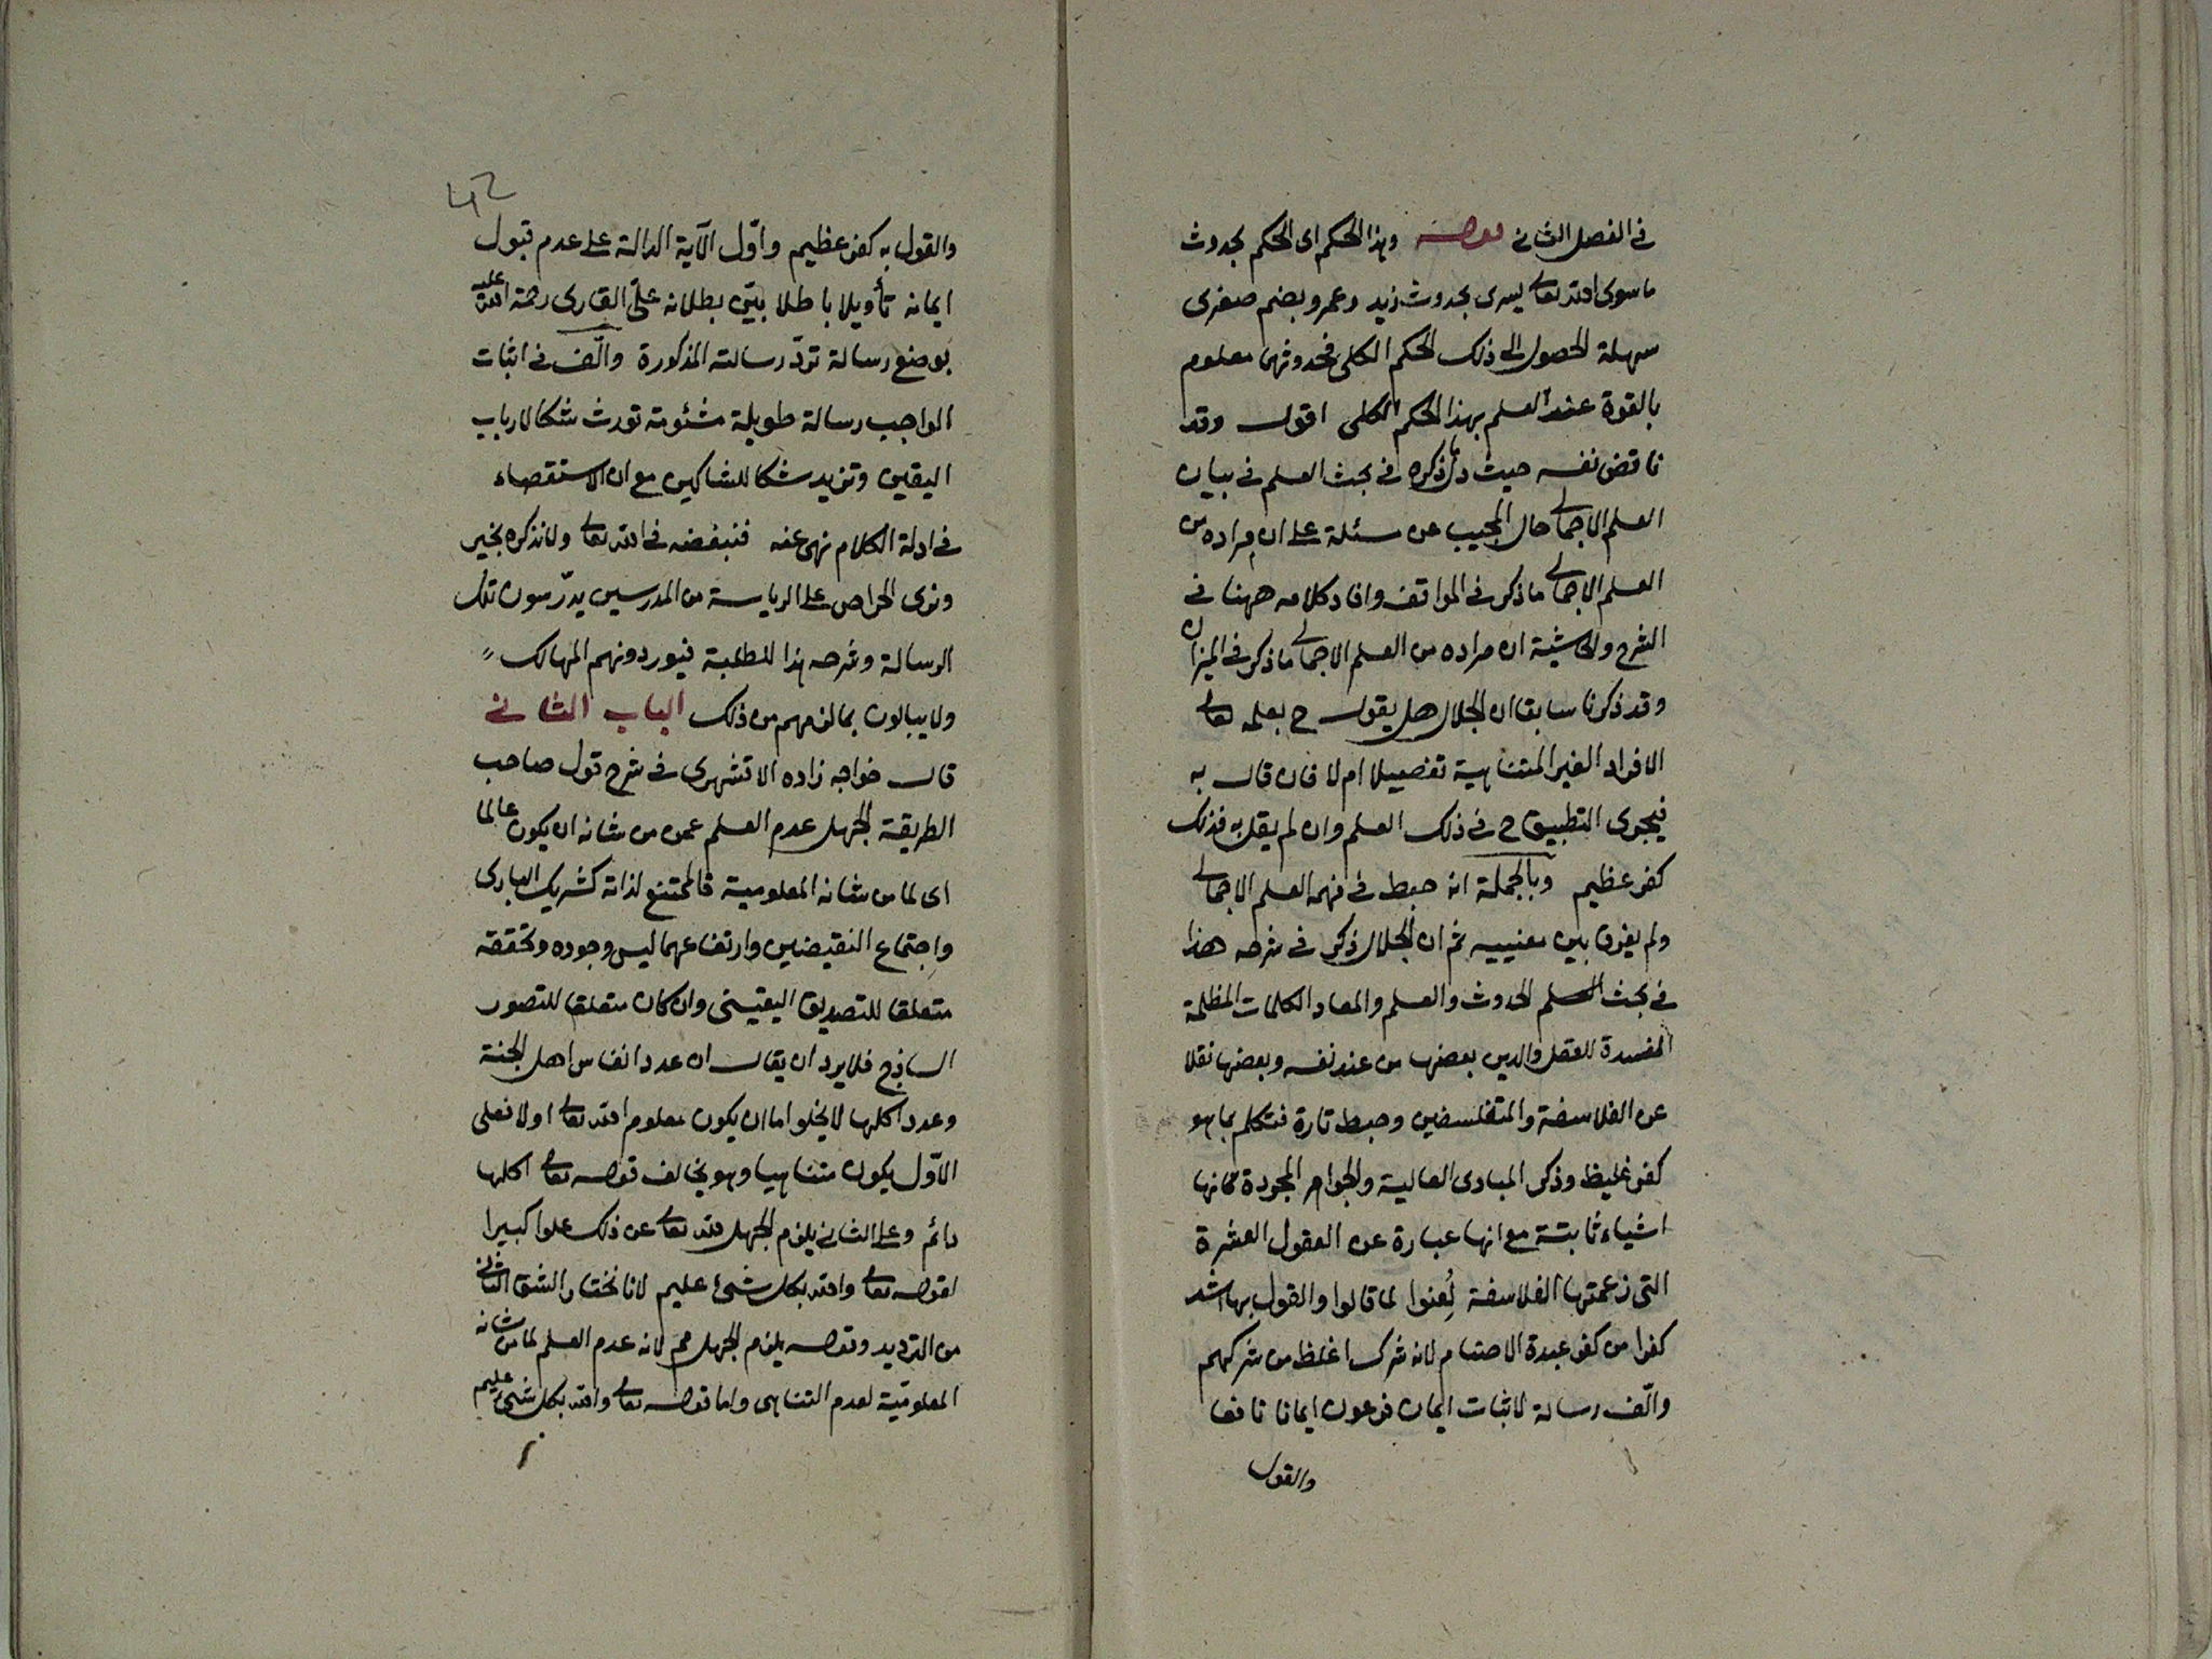 في الفصل الثاني قوله وهذا الحكم اى الحكم بحدوث
ما سوى الله تعالى يسرى بحدوث زيد وعمرو بضم صغرى
سهلة الحصول الى ذلك الحكم الكلى فحدوثهما معلوم
بالقوة عند العلم بهذا الحكم الكلى اقول وقد
ناقض نفسه حيث دل ما ذكره في بحث العلم في بيان
العلم الاجمالى حال المجيب عن مسئلة على ان مراده من
العلم الاجمالى ما ذكر في المواقف وافاد كلامه ههنا في
الشرح والحاشية ان مراده من العلم الاجمالى ما ذكر في الميزان
وقد ذكرنا سابقا ان الجلال هل يقول ح بعلمه تعالى
الافراد الغير المتناهية تفصيلا ام لا فان قال به
فيجرى التطبيق ح في ذلك العلم وان لم يقل به فذلك
كفر عظيم وبالجملة انه خبط في فهم العلم الاجمالى
ولم يفرق بين معنييه ثم ان الجلال ذكر في شرحه هذا
في بحث العلم الحدوث والعلم والمعاد الكلمات المظلمة
المفسدة للعقل والدين بعضها من عند نفسه وبعضها نقلا
عن الفلاسفة والمتفلسفين وخبط تارة فتكلم بما هو
كفر غليظ وذكر المبادى العالية والجواهر المجردة كانها
اشياء ثابتة مع انها عبارة عن العقول العشرة
التى زعمتها الفلاسفة لُعِنوا لما قالوا والقول بها اشد
كفرا من كفر عبدة الاصنام لانه شرك اغلظ من شركهم
والّف رسالة لاثبات ايمان فرعون ايمانا نافعا
والقول
42
والقول به كفر عظيم واوّل الآية الدالة على عدم قبول
ايمانه تأويلا باطلا بيّن بطلانه علىّ القارى رحمة الله عليه
بوضع رسالة تردّ رسالته المذكورة والّف في اثبات
الواجب رسالة طويلة مشئومة تورث شكا لارباب
اليقين وتزيد شكا للشاكين مع ان الاستقصاء
في ادلة الكلام نهى عنه فنبغضه في الله تعالى ولا نذكره بخير
ونرى الحراص على الرياسة من المدرسين يدرّسون تلك
الرسالة وشرحه هذا للطلبة فيوردونهم المهالك
ولا يبالون بما لزمهم من ذلك الباب الثاني
قال خواجه زاده الاقشهرى في شرح قول صاحب
الطريقة الجهل عدم العلم عمن من شانه ان يكون عالما
اى لما من شانه المعلومية فالممتنع لذاته كشريك البارى
واجتماع النقيضين وارتفاعهما ليس وجوده وتحققه
متعلقا للتصديق اليقينى وان كان متعلقا للتصور
الساذج فلا يرد ان يقال ان عدد انفاس اهل الجنة
وعدد اكلها لا يخلوا اما ان يكون معلوم الله تعالى او لا فعلى
الاوّل يكون متناهيا وهو يخالف قوله تعالى اكلها
دائم وعلى الثاني يلزم الجهل لله تعالى عن ذلك علوا كبيرا
لقوله تعالى والله بكل شئ عليم لانا نختار الشق الثاني
من الترديد وقوله يلزم الجهل مم لانه عدم العلم لما من شانه
المعلوميّة لعدم التناهى واما قوله تعالى والله بكل شئ عليم